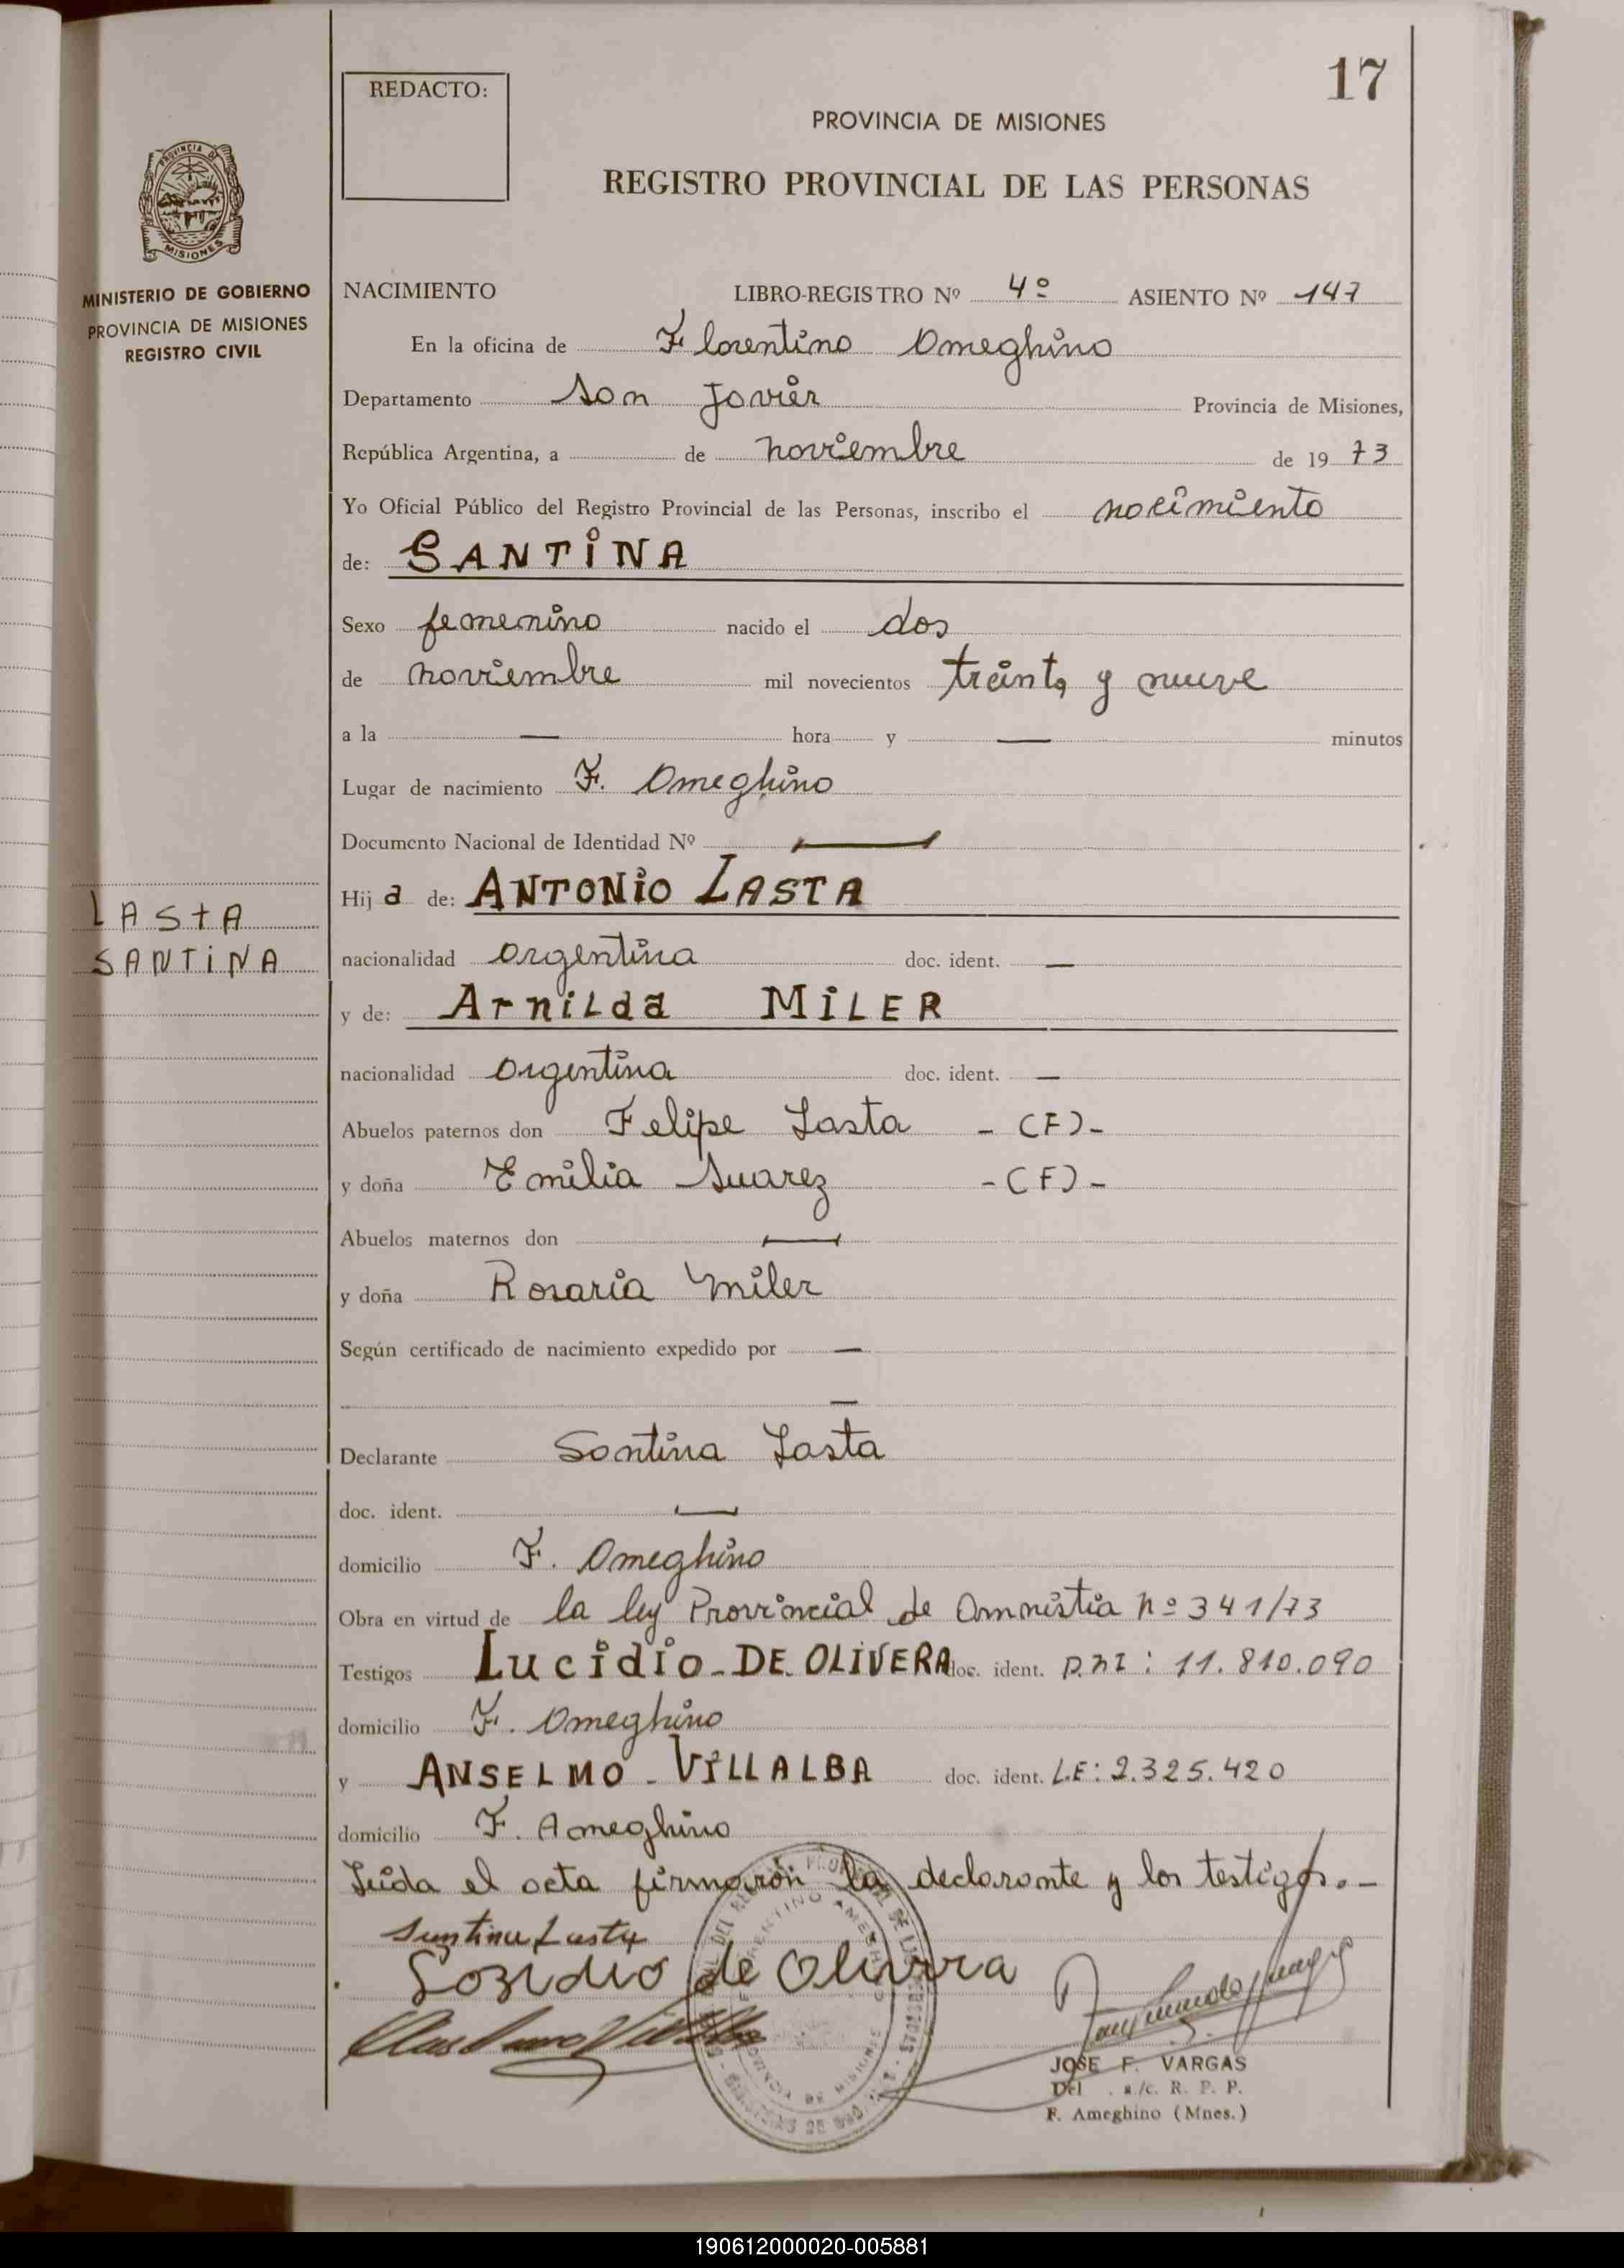 17
REDACTO:
PROVINCIA DE MISIONES
REGISTRO PROVINCIAL DE LAS PERSONAS
PROVINCIA DE
MISIONES
MINISTERIO DE GOBIERNO
PROVINCIA DE MISIONES
REGISTRO CIVIL
NACIMIENTO LIBRO-REGISTRO Nº 4º ASIENTO Nº 147
En la oficina de Florentino Ameghino
Departamento San Javier Provincia de Misiones,
República Argentina, a de noviembre de 1973
Yo Oficial Público del Registro Provincial de las Personas, inscribo el nacimiento
de: SANTINA
Sexo femenino nacido el dos
de noviembre mil novecientos treinta y nueve
a la — hora y — minutos
Lugar de nacimiento F. Ameghino
Documento Nacional de Identidad Nº —
Hija de: ANTONIO LASTA
LASTA
SANTINA
nacionalidad argentina doc. ident. —
y de: Arnilda MILER
nacionalidad argentina doc. ident. —
Abuelos paternos don Felipe Lasta - (F) -
y doña Emilia Suarez - (F) -
Abuelos maternos don —
y doña Rosaria Miler
Según certificado de nacimiento expedido por —
—
Declarante Santina Lasta
doc. ident. —
domicilio F. Ameghino
Obra en virtud de la ley Provincial de Amnistia nº 341/73
Testigos Lucidio - DE OLIVERA doc. ident. D.N.I: 11.810.090
domicilio F. Ameghino
y ANSELMO - VILLALBA doc. ident. L.E: 2.325.420
domicilio F. Ameghino
Leida el acta firmaron la declarante y los testigos.-
Santina Lasta
de Oliverra
JOSE F. VARGAS
Del . a/c. R. P. P.
F. Ameghino (Mnes.)
190612000020-005881